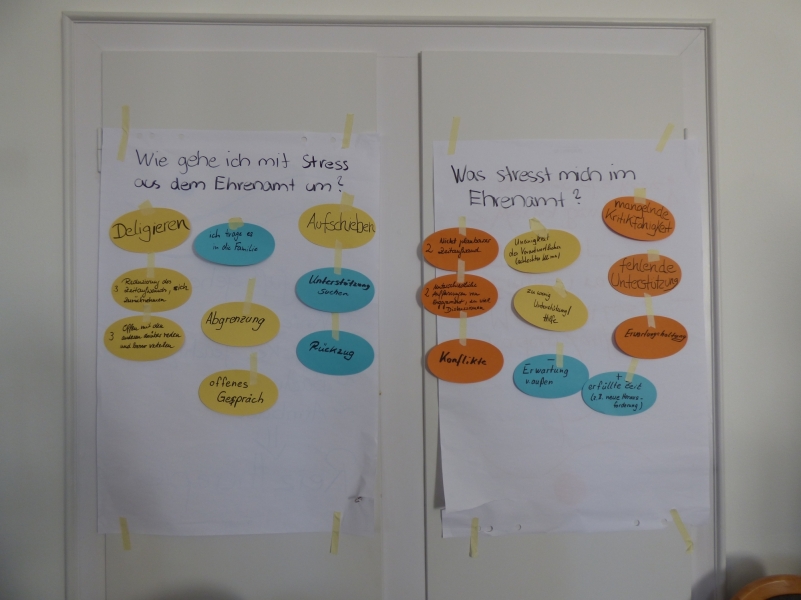 Wie gehe ich mit Stress
aus dem Ehrenamt um?
Deligieren
ich trage es
in die Familie
Aufschieben
3 Reduzierung des
Zeitaufwandes, sich
zurücknehmen
Unterstützung
suchen
Abgrenzung
3 Offen mit den
anderen darüber reden
und besser verteilen
Rückzug
offenes
Gespräch
Was stresst mich im
Ehrenamt?
mangelnde
Kritikfähigkeit
2 Nicht planbarer
Zeitaufwand
Uneinigkeit
der Verantwortlichen
fehlende
Unterstützung
2 Unterschiedliche
Auffassungen von
Engagement, zu viel
Diskussionen
zu wenig
Unterstützung/
Hilfe
Erwartungshaltung
Konflikte
–
Erwartung
v. außen
+
erfüllte Zeit
(z.B. neue Heraus-
forderung)